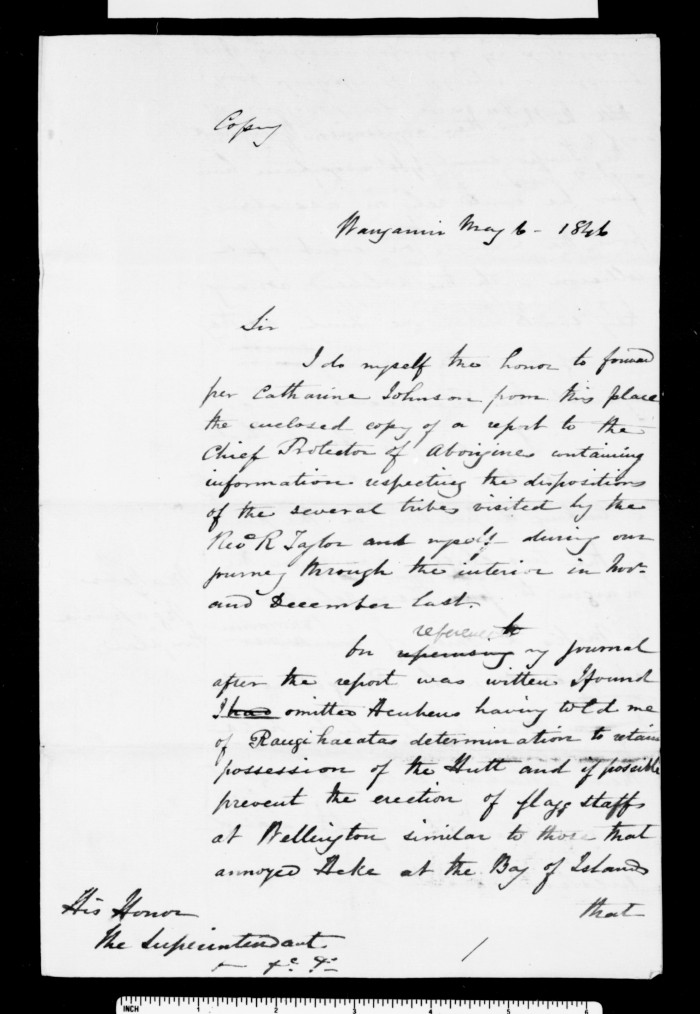 Copy
Wanganui May 6 - 1846
Sir
I do myself the honor to forward
per Catharine Johnson from this place
the enclosed copy of a report to the
Chief Protector of Aborigines containing
information respecting the dispositions
of the several tribes visited by the
Revd R Taylor and myself during our
journey through the interior in Novr
and December last.
reference to
On reperusing my journal
after the report was written I found
I had omitted Heuheus having told me
of Rangihaeatas determination to retain
possession of the Hutt and if possible
prevent the erection of flagg staffs
at Wellington similar to those that
annoyed Heke at the Bay of Islands
that
His Honor
The Superintendant
&c &c
1
INCH 1 2 3 4 5 6